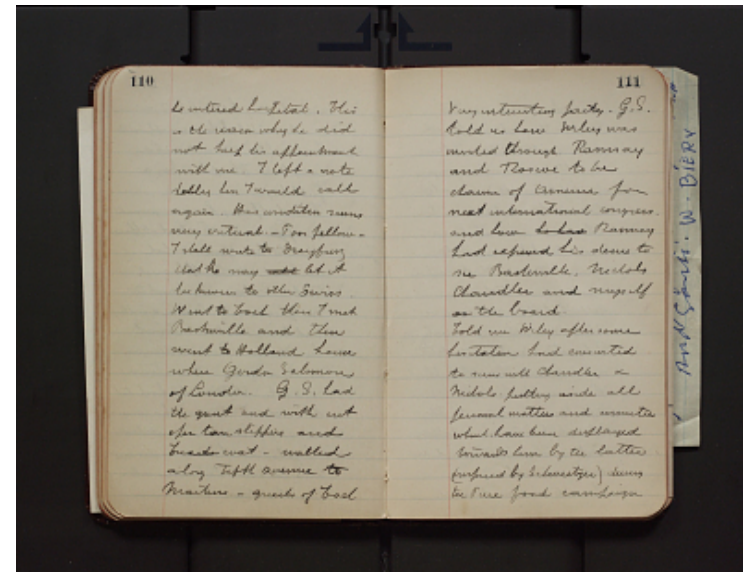 110
he entered hospital. This
is the reason why he did
not keep his appointment
with me. I left a note
telling him I would call
again. His condition seems
very critical. - Poor fellow -
I shall write to
that he may let it
be known to other Swiss.
Went to Bost then I met
Baskerville and then
went to Holland house
where Gordon Salamon
of London. G.S. had
the gout and with cut
open tan slippers and
coat - walked
along Fifth avenue to
- guests of Bost
111
Very interesting party. G.S.
told us how Wiley was
invited through Ramsay
and Roscoe to be
chairman of Commee for
next international congress.
and how Ramsay
had expressed his desire to
see Baskerville, Nichols
Chandler and myself
on the board.
Told me Wiley after some
hesitation had consented
to serve with Chandler &
Nichols putting aside all
personal matters and
which have been displayed
towards him by the latter
(inspired by Schweitzer) during
the Pure food campaign
W. BIERY